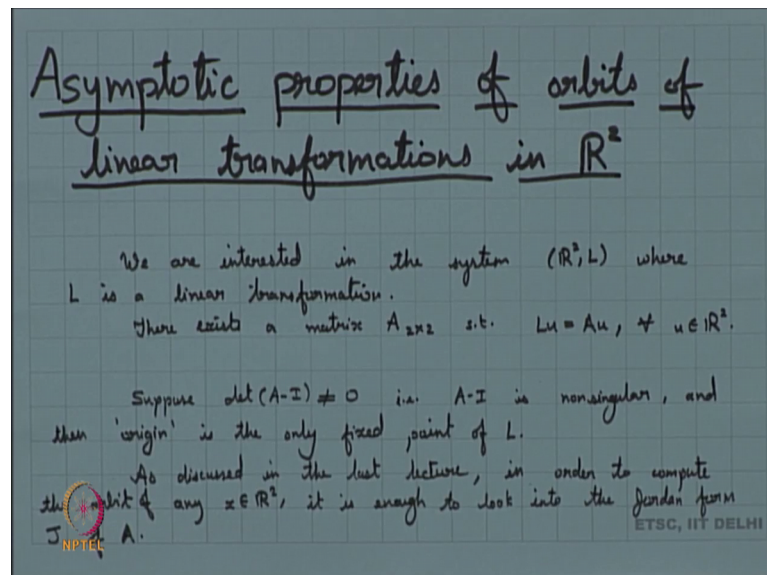 Asymptotic properties of orbits of
linear transformations in ℝ²
We are interested in the system (ℝ², L) where
L is a linear transformation.
There exists a matrix A₂ₓ₂ s.t. Lu = Au, ∀ u ∈ ℝ².
Suppose det (A-I) ≠ 0 i.e. A-I is nonsingular, and
then 'origin' is the only fixed point of L.
As discussed in the last lecture, in order to compute
the orbit of any x ∈ ℝ², it is enough to look into the Jordan form
J of A.
NPTEL
ETSC, IIT DELHI